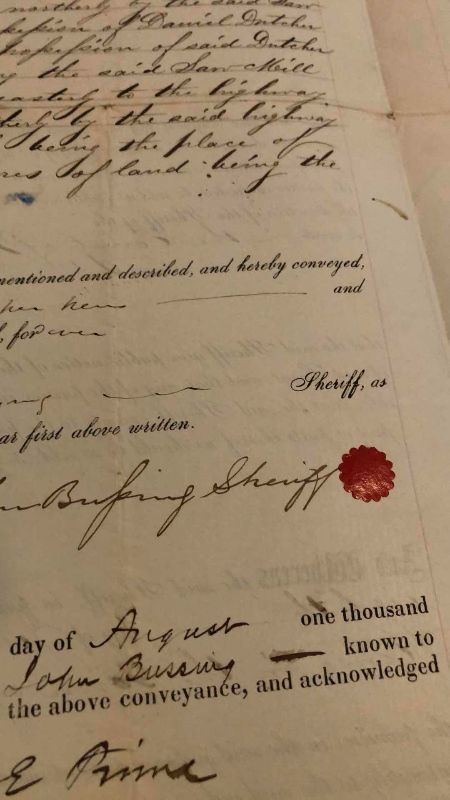 northerly by the said Saw
session of Daniel Dutcher
possession of said Dutcher
the said Saw Mill
easterly to the highway
by the said highway
being the place of
of land being the
mentioned and described, and hereby conveyed,
her heirs and
forever
Sheriff, as
first above written.
Bussing Sheriff
day of August one thousand
John Bussing known to
the above conveyance, and acknowledged
E Prime